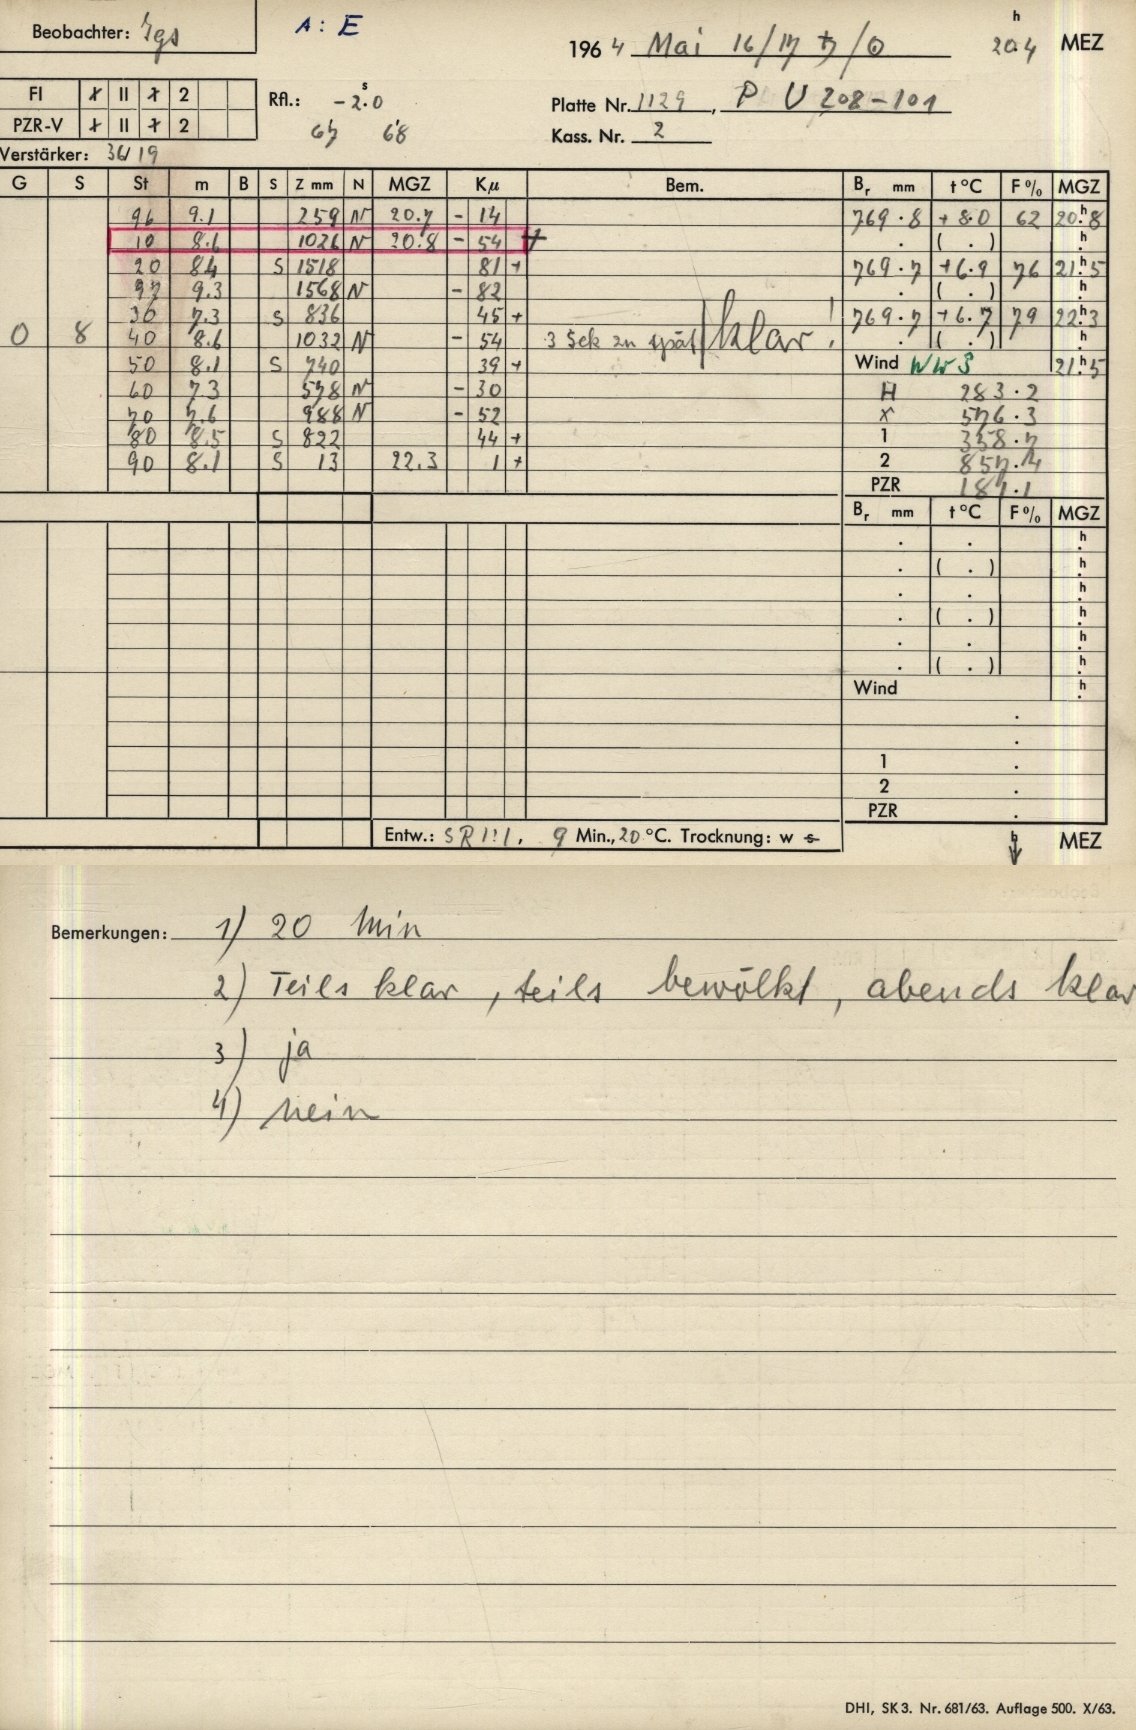 Beobachter: Jgs A: E 1964 Mai 16/17 ♄/☉ 20.4 h MEZ
FI X II X 2 Rfl.: -2.0 s Platte Nr. 1129, P U 208-101
PZR-V X II X 2 67 68 Kass. Nr. 2
Verstärker: 36/19
G S St m B S Z mm N MGZ Kμ Bem. Br mm t °C F % MGZ
96 9.1 259 N 20.7 - 14 769.8 +8.0 62 20.8 h
10 8.6 1026 N 20.8 - 54 + . ( . ) . h
20 8.4 S 1518 81 + 769.7 +6.9 76 21.5 h
97 9.3 1568 N - 82 . ( . ) . h
30 7.3 S 836 45 + 769.7 +6.7 79 22.3 h
0 8 40 8.6 1032 N - 54 3 Sek zu spät klar! . ( . ) . h
50 8.1 S 740 39 + Wind WW3 21.5 h
60 7.3 578 N - 30 H 283.2
70 7.6 988 N - 52 X 576.3
80 8.5 S 822 44 + 1 338.7
90 8.1 S 13 22.3 1 + 2 857.4
PZR 187.1
Br mm t °C F % MGZ
. . . h
. ( . ) . h
. . . h
. ( . ) . h
. . . h
. ( . ) . h
Wind . h
.
.
1 .
2 .
PZR .
Entw.: SR 1:1, 9 Min., 20 °C. Trocknung: w s h MEZ
Bemerkungen: 1) 20 Min
2) Teils klar, teils bewölkt, abends klar
3) ja
4) nein
DHI, SK 3. Nr. 681/63. Auflage 500. X/63.